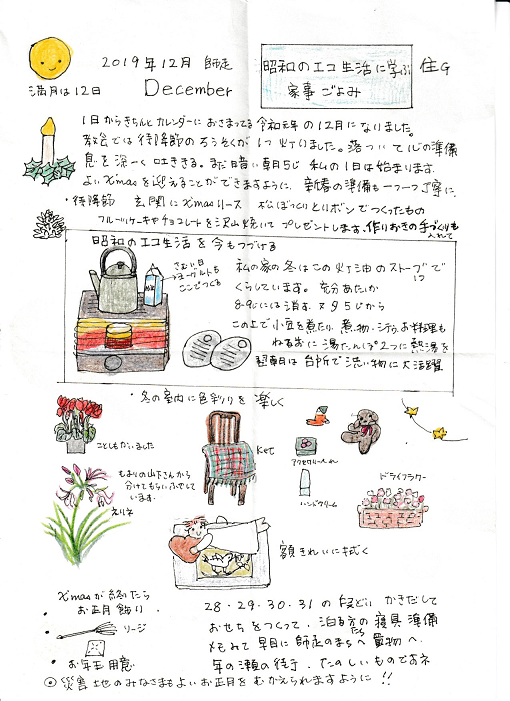 2019年12月 師走
満月は12日
December
昭和のエコ生活に学ぶ 住G
家事ごよみ
1日からきちんとカレンダーにおさまってる令和元年の12月になりました。
教会では待降節のろうそくが1つ灯りました。落ついて心の準備
息を深ーく吐ききる。まだ暗い朝5じ 私の1日は始まります。
よいXmasを迎えることができますように、新春の準備も一つ一つ丁寧に。
・待降節 玄関にXmasリース 松ぼっくりとリボンでつくったもの
フルーツケーキやチョコレートを沢山焼いてプレゼントします。作りおきの手づくりも
入れて
昭和のエコ生活を今もつづける
さむい日
ヨーグルトも
ここでつくる
私の家の冬はこの灯油のストーブ1つで
くらしています。充分あたたか
8-9じには消す。又夕5じから
この上で小豆を煮たり、煮物・シチウ、お料理も
ねる前に湯たんぽ2つに熱湯を
翌朝は台所で洗い物に大活躍
・冬の室内に色彩りを楽しく
ことしもかいました
ひざかけ
アクセサリー入れ
ハンドクリーム
ドライフラワー
もよりの山下さんから
分けてもらいふやして
います。
えりネ
額きれいに拭く
Xmasが終ったら
お正月飾り
リージ
・お年玉用意
28・29・30・31の段どり かきだして
おせちをつくって、泊る方の寝具準備
メモみて早目に師走のまちへ買物へ
年の瀬の待つ たのしいものであネ
災害地のみなさまもよいお正月をむかえられますように!!